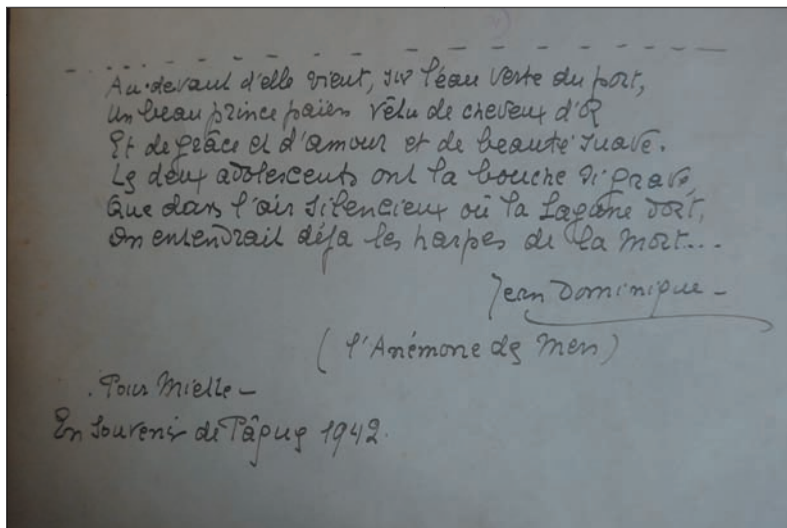 - - - - - - - - - - - - - - - - - - - -
Au-devant d'elle vient, sur l'eau verte du port,
Un beau prince païen vêtu de cheveux d'or
Et de grâce et d'amour et de beauté suave.
Les deux adolescents ont la bouche si grave,
Que dans l'air silencieux où la Lagune dort,
On entendrait déjà les harpes de la Mort...
Jean Dominique -
(l'Anémone des Mers)
Pour Mielle -
En Souvenir de Pâques 1942.